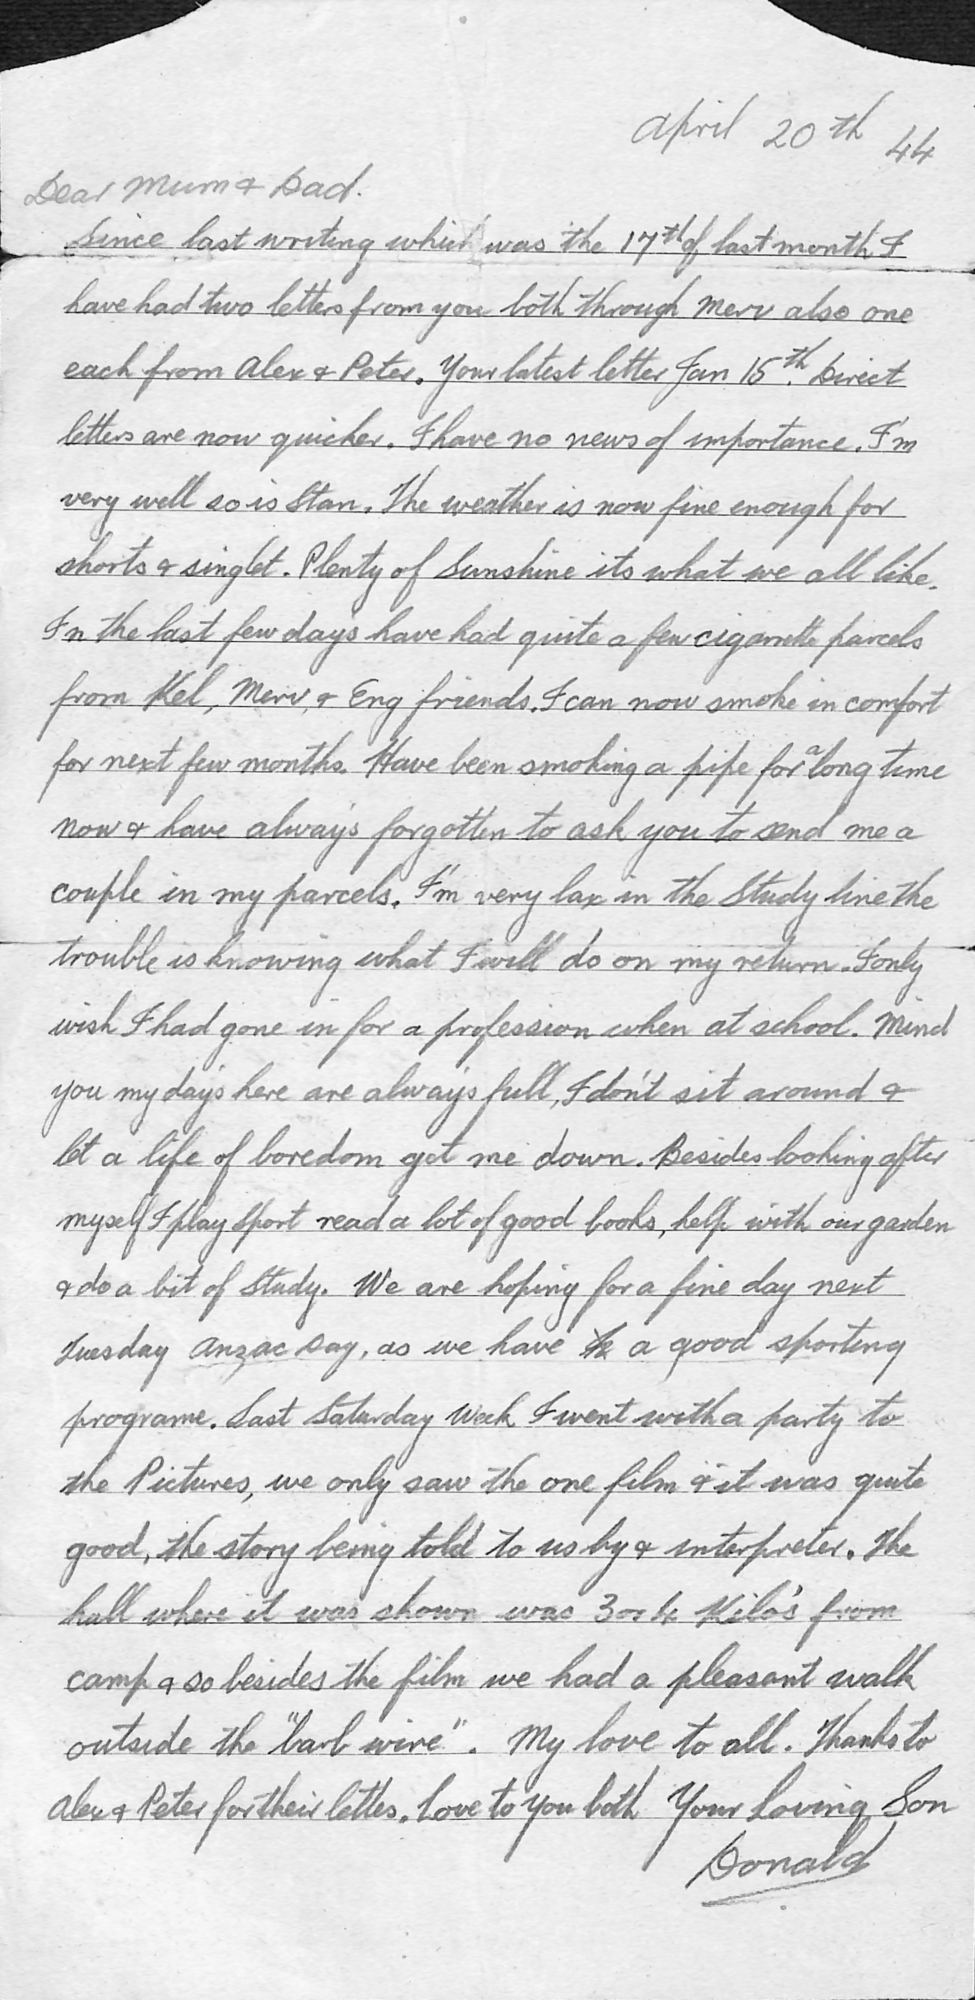 April 20th 44
Dear Mum & Dad.
Since last writing which was the 17th of last month I
have had two letters from you both through Merv also one
each from Alex & Peter. Your latest letter Jan 15th. Direct
letters are now quicker. I have no news of importance. I'm
very well so is Stan. The weather is now fine enough for
shorts & singlet. Plenty of Sunshine its what we all like.
In the last few days have had quite a few cigarette parcels
from Kel, Merv, & Eng friends. I can now smoke in comfort
for next few months. Have been smoking a pipe for a long time
now & have always forgotten to ask you to send me a
couple in my parcels. I'm very lax in the Study line the
trouble is knowing what I will do on my return. I only
wish I had gone in for a profession when at school. Mind
you my days here are always full, I don't sit around &
let a life of boredom get me down. Besides looking after
myself I play sport read a lot of good books, help with our garden
& do a bit of Study. We are hoping for a fine day next
Tuesday Anzac Day, as we have a good sporting
programe. Last Saturday Week I went with a party to
the Pictures, we only saw the one film & it was quite
good, the story being told to us by & interpreter. The
hall where it was shown was 3 or 4 Kilo's from
camp & so besides the film we had a pleasant walk
outside the "barb wire". My love to all. Thanks to
Alex & Peter for their lettes. Love to you both Your Loving Son
Donald